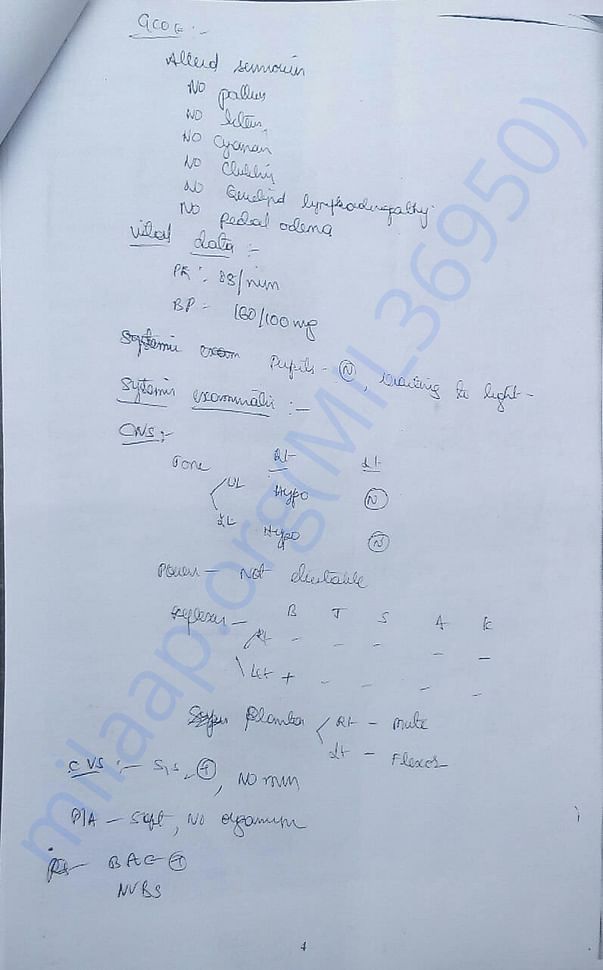 GCOE :-
Altered sensorium
NO pallor
NO Icterus
NO Cyanosis
NO Clubbing
NO lymphadenopathy
NO Pedal odema
vital data :-
PR :- 88/min
BP - 160/100 mg
Systemic exam Pupils - N, reacting to light -
Systemic examination :-
CNS :-
Tone Rt Lt
UL Hypo N
LL Hypo N
Power - Not elicitable
Reflexes - B T S A K
Rt - - - - -
Left + - - - -
Plantar Rt - Mute
Lt - Flexor
CVS :- S1S2 +, NO mur
P/A - Soft, NO organum
RS - BAE +
NVBS
1
milaap.org(MIL36950)